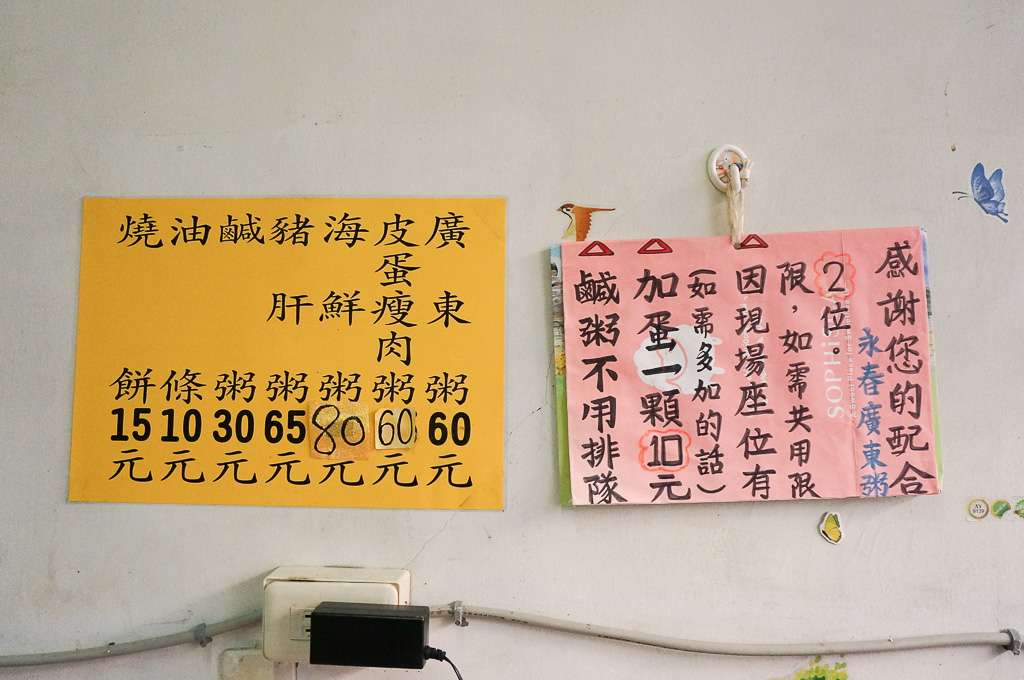 廣東粥60元
皮蛋瘦肉粥60元
海鮮粥80元
豬肝粥65元
鹹粥30元
油條10元
燒餅15元
鹹粥不用排隊
加蛋一顆10元
(如需多加的話)
因現場座位有
限,如需共用限
2位。
永春廣東粥
感謝您的配合